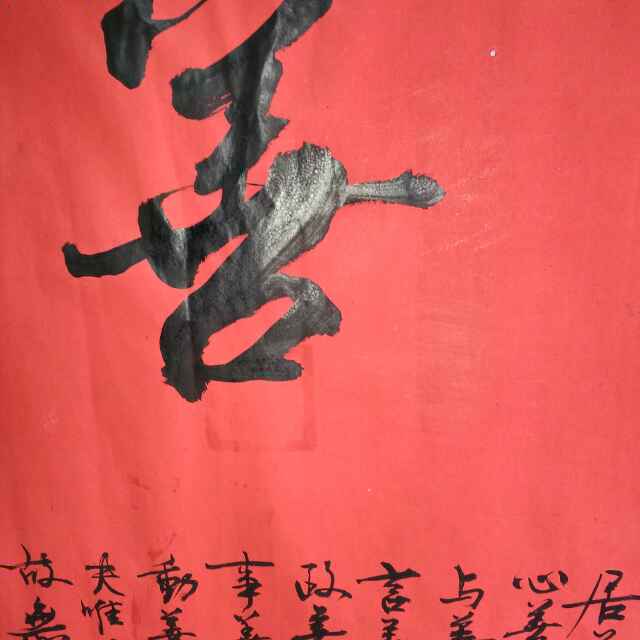 善
居
心善
与善
言善
政善
事善
動善
夫唯
故無